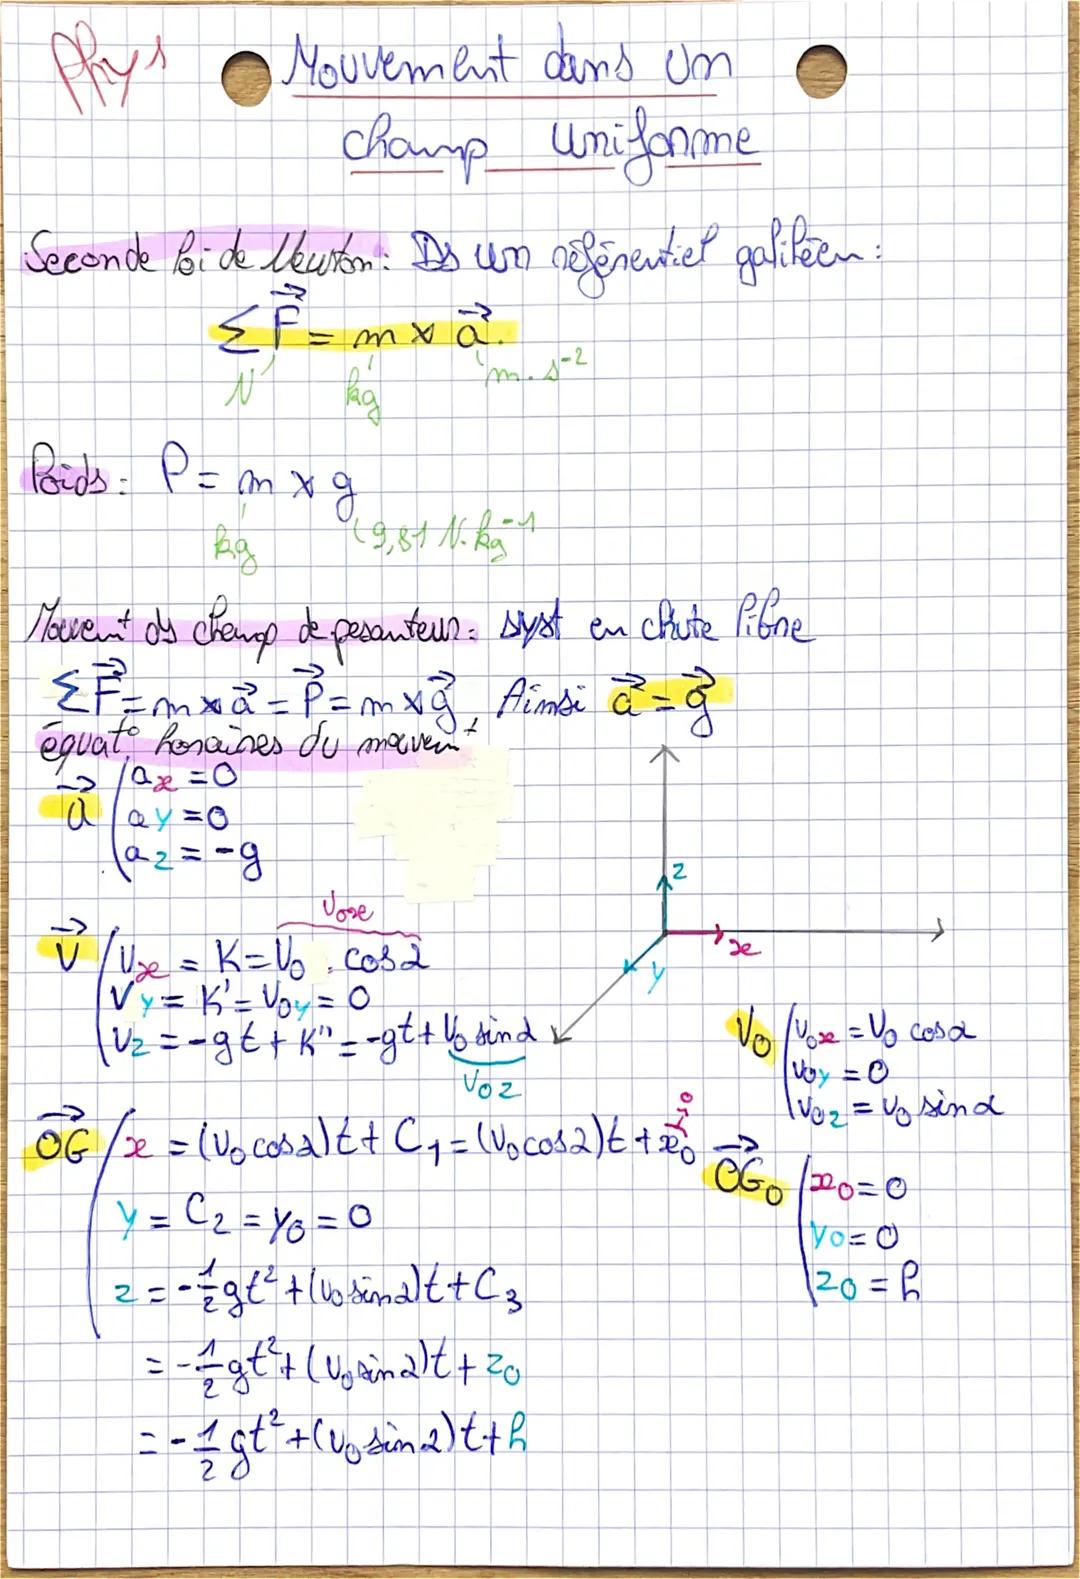 Phys
Mouvement dans un
champ uniforme
Seconde loi de Newton: Ds un référentiel galiléen:
Σ F⃗ = m × a⃗.
N kg m.s⁻²
Poids: P = m × g
kg (9,81 N.kg⁻¹
Mouvem^t ds champ de pesanteur: syst en chute libre
Σ F⃗ = m × a⃗ = P⃗ = m × g⃗, Ainsi a⃗ = g⃗
équat° horaires du mouvem^t
a⃗ | ax = 0
ay = 0
az = -g
z
x
y
V0x
V⃗ | Vx = K = V0 . cos α
Vy = K' = V0y = 0
Vz = -gt + K'' = -gt + V0 sin α
V0z
V0 | V0x = V0 cos α
V0y = 0
V0z = V0 sin α
OG⃗ | x = (V0 cos α)t + C1 = (V0 cos α)t + x0 → 0
y = C2 = y0 = 0
z = -1/2 gt² + (V0 sin α)t + C3
= -1/2 gt² + (V0 sin α)t + z0
= -1/2 gt² + (V0 sin α)t + h
OG0⃗ | x0 = 0
y0 = 0
z0 = h